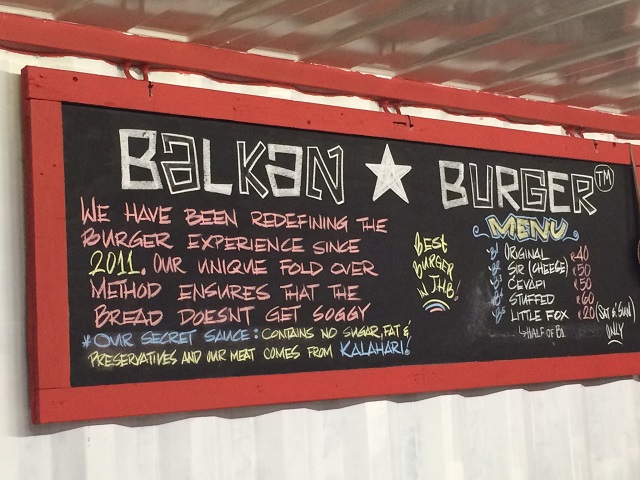 BALKAN ★ BURGER TM
WE HAVE BEEN REDEFINING THE
BURGER EXPERIENCE SINCE
2011. OUR UNIQUE FOLD OVER
METHOD ENSURES THAT THE
BREAD DOESNT GET SOGGY
*OUR SECRET SAUCE: CONTAINS NO SUGAR, FAT &
PRESERVATIVES AND OUR MEAT COMES FROM KALAHARI!
BEST
BURGER
IN JHB
MENU
B1 ORIGINAL R40
B2 SIR (CHEESE) R50
B3 CEVAPI R50
B4 STUFFED R60
B5 LITTLE FOX R20 (SAT & SUN)
ONLY
HALF OF B1